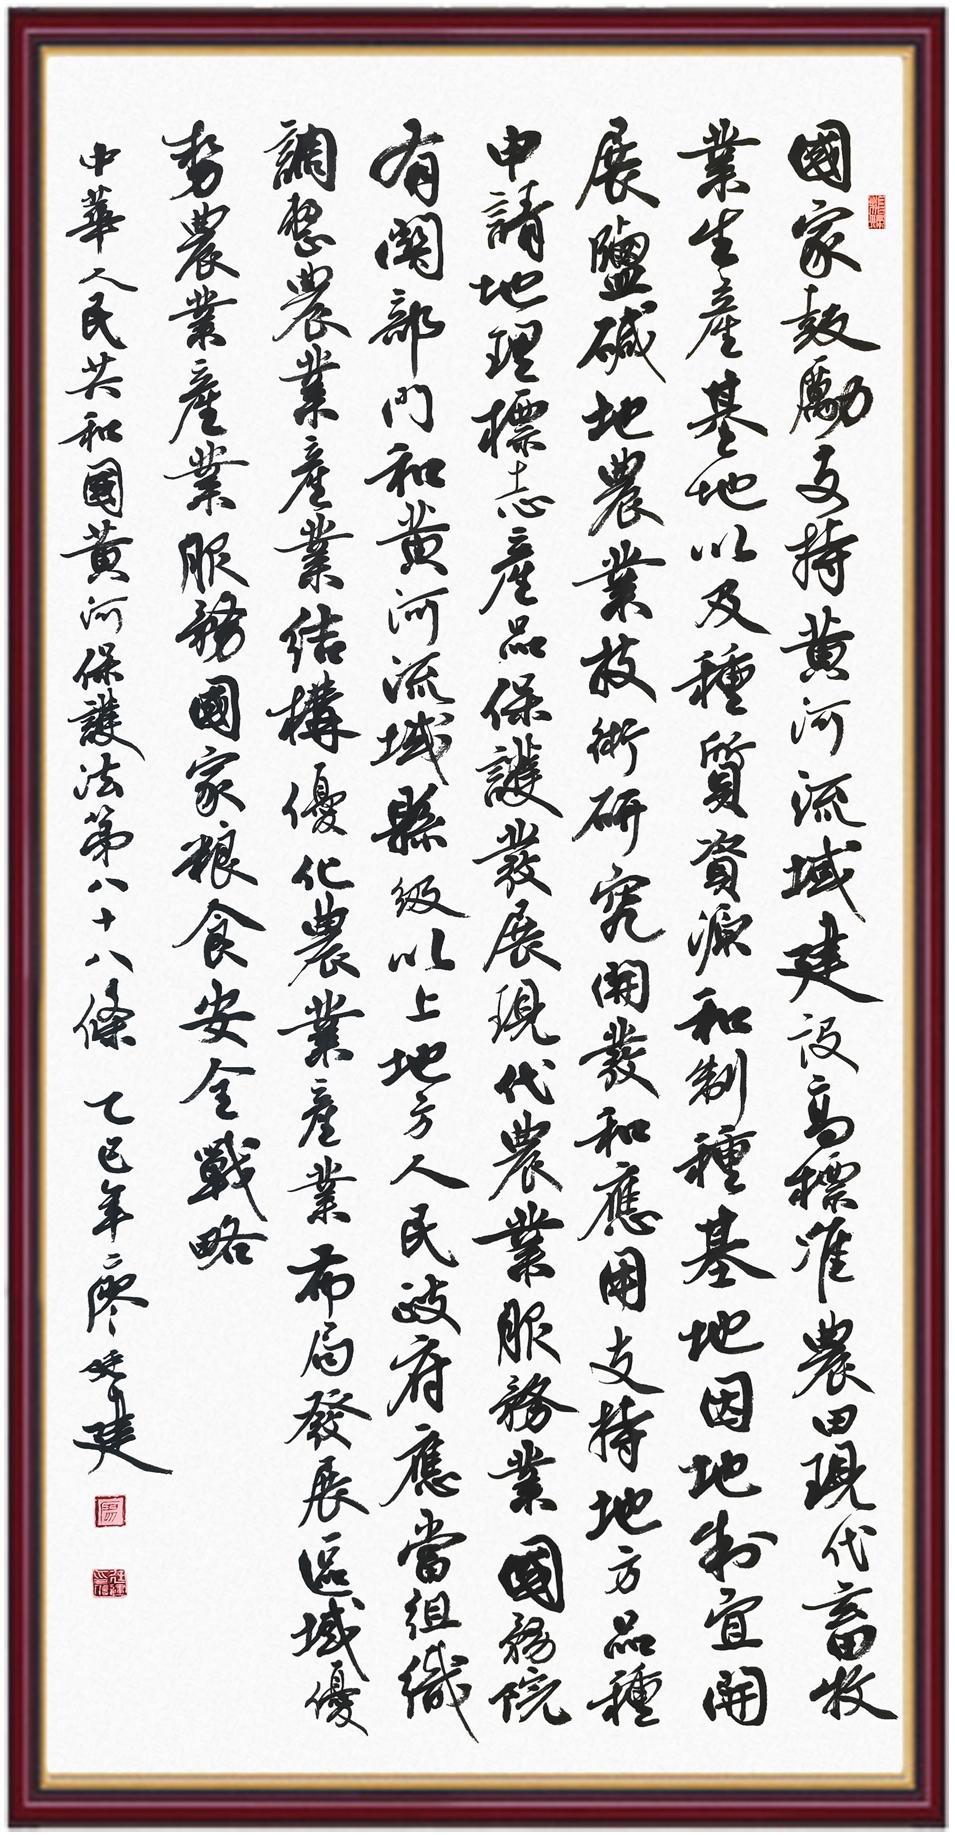 國家鼓勵支持黃河流域建設高標準農田現代畜牧
業生產基地以及種質資源和制種基地因地制宜開
展鹽碱地農業技術研究開發和應用支持地方品種
申請地理標志產品保護發展現代農業服務業國務院
有關部門和黃河流域縣級以上地方人民政府應當組織
調整農業產業結構優化農業產業布局發展區域優
勢農業產業服務國家粮食安全戰略
中華人民共和國黃河保護法第八十八條 乙巳年 廖廷建